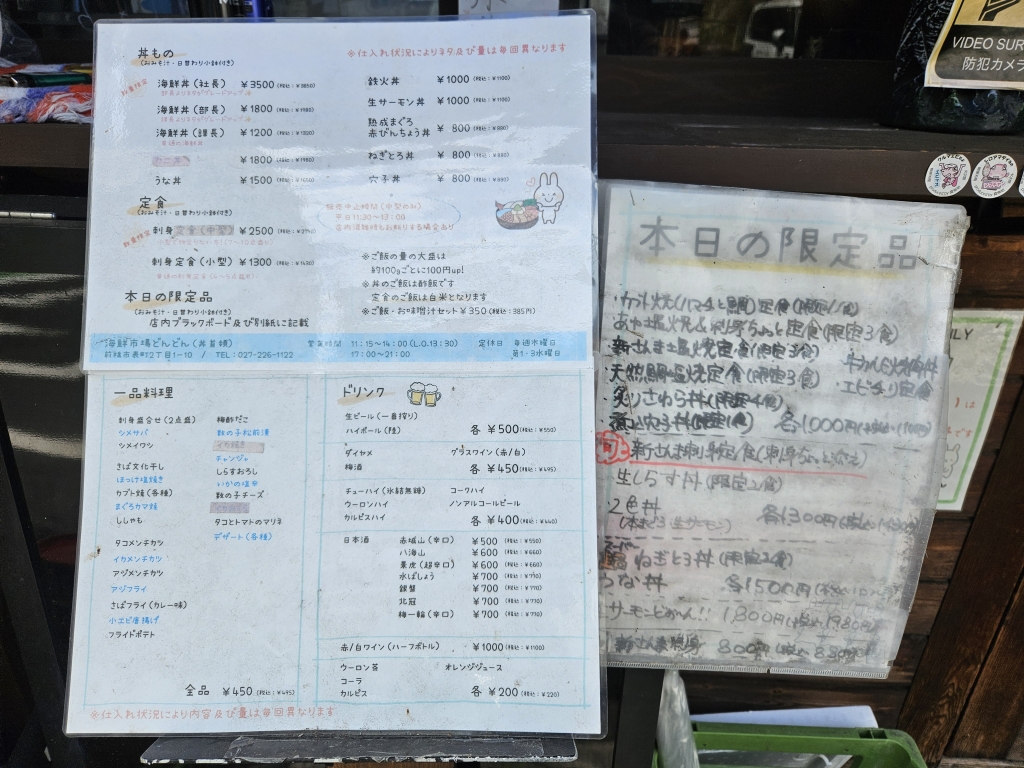 丼もの
(おみそ汁・日替わり小鉢付き)
※仕入れ状況によりネタ及び量は毎回異なります
海鮮丼(社長) ¥3500(税込:¥3850)
海鮮丼(部長) ¥1800(税込:¥1980)
海鮮丼(課長) ¥1200(税込:¥1320)
¥1800(税込:¥1980)
うな丼 ¥1500(税込:¥1650)
鉄火丼 ¥1000(税込:¥1100)
生サーモン丼 ¥1000(税込:¥1100)
熟成まぐろ
赤びんちょう丼 ¥800(税込:¥880)
ねぎとろ丼 ¥800(税込:¥880)
穴子丼 ¥800(税込:¥880)
定食
(おみそ汁・日替わり小鉢付き)
数量限定
刺身定食(中型) ¥2500(税込:¥2750)
刺身定食(小型) ¥1300(税込:¥1430)
平日11:30~13:00
店内混雑時もお断りする場合あり
※ご飯の量の大盛は
約100gごとに100円up!
※丼のご飯は酢飯です
定食のご飯は白米となります
※ご飯・お味噌汁セット¥350(税込:385円)
本日の限定品
(おみそ汁・日替わり小鉢付き)
店内ブラックボード及び別紙に記載
海鮮市場どんどん(丼首領)
前橋市表町2丁目1-10 / TEL:027-226-1122
営業時間 11:15~14:00(L.O.13:30)
17:00~21:00
定休日 毎週木曜日
第1・3水曜日
一品料理
刺身盛合せ(2点盛)
シメサバ
シメイワシ
さば文化干し
ほっけ塩焼き
カブト焼(各種)
まぐろカマ焼
ししゃも
タコメンチカツ
イカメンチカツ
アジメンチカツ
アジフライ
さばフライ(カレー味)
小エビ唐揚げ
フライドポテト
梅酢だこ
数の子松前漬
チャンジャ
しらすおろし
いかの塩辛
数の子チーズ
タコとトマトのマリネ
デザート(各種)
全品 ¥450(税込:¥495)
※仕入れ状況により内容及び量は毎回異なります
ドリンク
生ビール(一番搾り)
ハイボール(陸) 各 ¥500(税込:¥550)
ダイヤメ グラスワイン(赤/白)
梅酒 各 ¥450(税込:¥495)
チューハイ(氷結無糖) コークハイ
ウーロンハイ ノンアルコールビール
カルピスハイ 各 ¥400(税込:¥440)
日本酒 赤城山(辛口) ¥500(税込:¥550)
八海山 ¥600(税込:¥660)
景虎(超辛口) ¥600(税込:¥660)
水ばしょう ¥700(税込:¥770)
銀盤 ¥700(税込:¥770)
北冠 ¥700(税込:¥770)
梅一輪(辛口) ¥700(税込:¥770)
赤/白ワイン(ハーフボトル) ¥1000(税込:¥1100)
ウーロン茶 オレンジジュース
コーラ
カルピス 各 ¥200(税込:¥220)
本日の限定品
新さんま塩焼定食(限定3食)
天然鯛塩焼定食(限定3食)
エビチリ定食
炙りさわら丼(限定4食)
各1,000円
生しらす丼(限定2食)
2色丼
各1300円
ねぎとろ丼(限定2食)
うな丼 各1500円
1,800円(税込1980円)
800円(税込880円)
VIDEO SUR
防犯カメラ